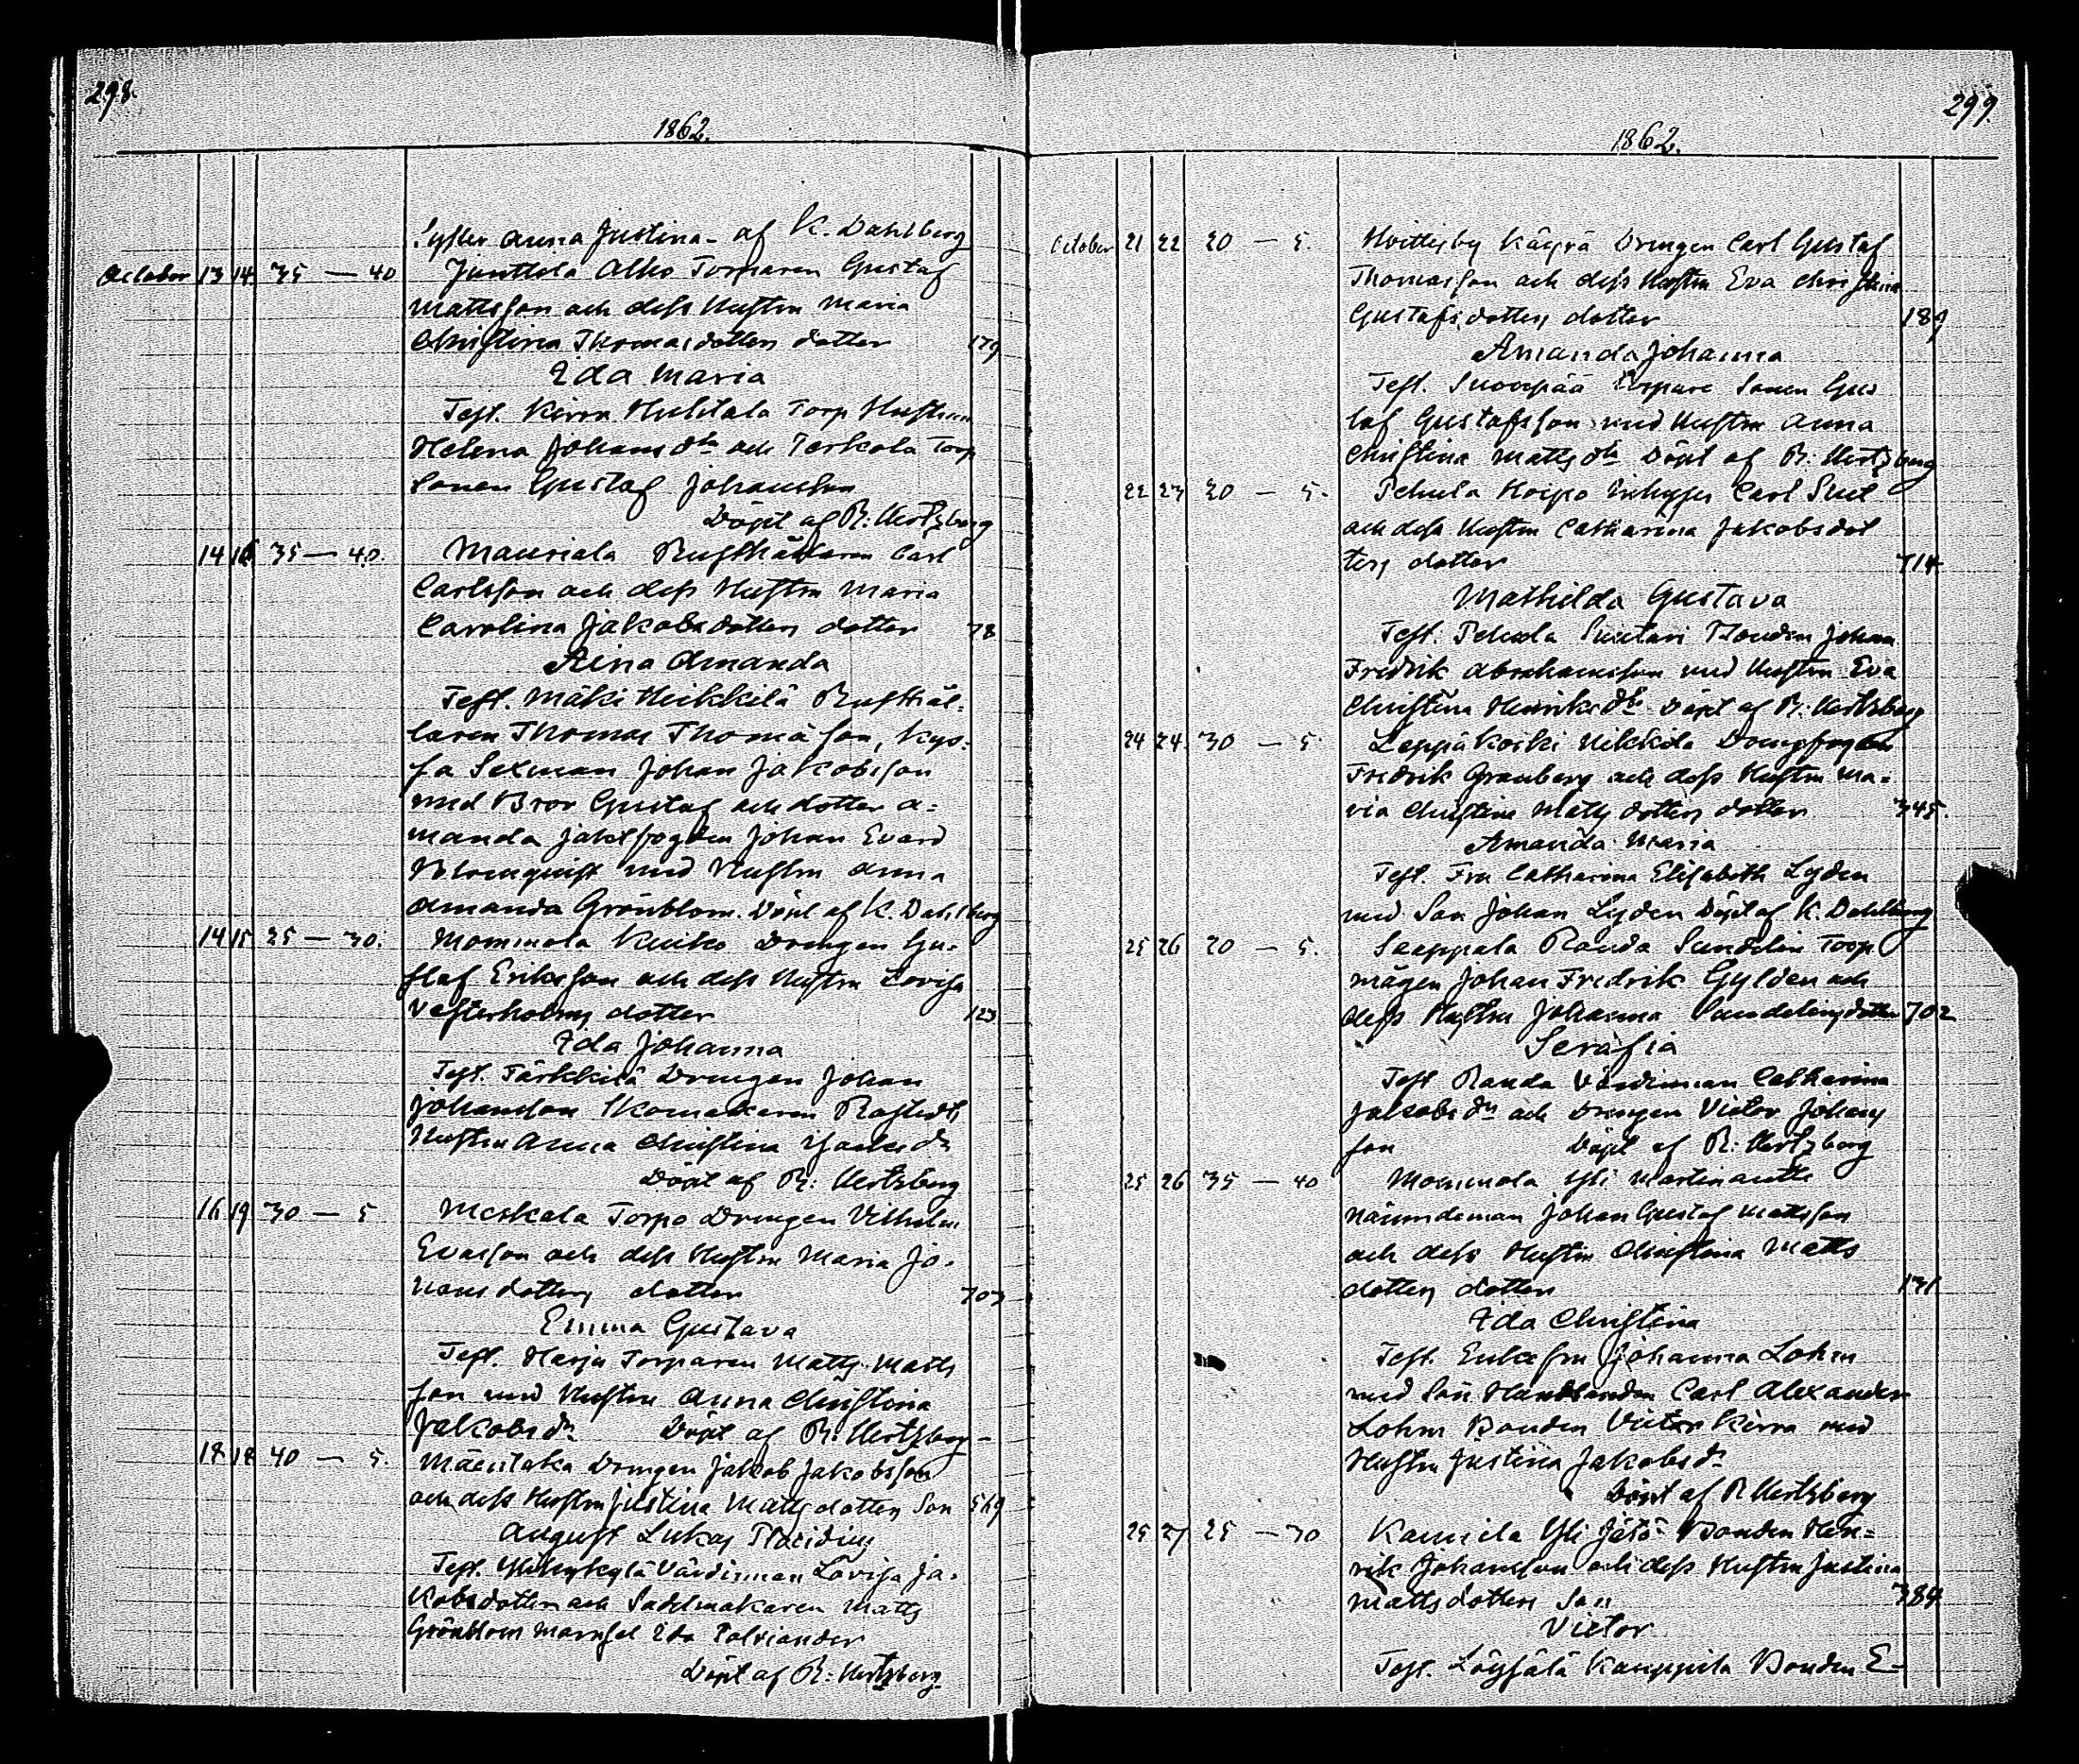 298.
1862.
Syster Anna Justina - af K. Dahlberg
October 13 14 35 — 40 Junttila Alho Torparen Gustaf
Mattsson och dess Hustru Maria
Christina Thomasdotters dotter 179
Ida Maria
Test. Kirra Huhtala Torp Hustrun
Helena Johansdtr och Terkola Torp
Sonen Gustaf Johansson
Döpt af R: Hertzberg
14 16 35 — 40. Mauriala Rusthållaren Carl
Carlsson och dess Hustru Maria
Carolina Jakobsdotters dotter 78
Aina Amanda
Test. Mäki Heikkilä Rusthål-
laren Thomas Thomasson, Kys-
sa Sexman Johan Jakobsson
med Bror Gustaf och dotter A-
manda Jaktfogden Johan Evard
Blomquist med Hustru Anna
Amanda Grönblom. Döpt af K. Dahlberg
14 15 25 — 30. Mommola Kuiko Drengen Gu-
staf Eriksson och dess Hustru Lovisa
Vesterholms dotter 123
Ida Johanna
Test. Tärkkilä Drengen Johan
Johansson Skomakaren Rostedts
Hustru Anna Christina dr
Döpt af R: Hertzberg
16 19 30 — 5 Meskala Torpo Drengen Vilhelm
Evasson och dess Hustru Maria Jo-
hansdotters dotter 703
Emma Gustava
Test. Harju Torparen Matts Matts
son med Hustru Anna Christina
Jakobsdr Döpt af R: Hertzberg -
18 18 40 — 5. Mäentaka Drengen Jakob Jakobsson
och dess Hustru Justina Mattsdotters Son 569
August Lukas Placidius
Test. Värdinnan Lovisa Ja-
kobsdotter och Sadelmakaren Matts
Grönblom Mamsel Ida Palviander
Döpt af R: Hertzberg
299.
1862.
October 21 22 20 — 5. Hvittisby Käyrä Drengen Carl Gustaf
Thomasson och dess Hustru Eva Christina
Gustafsdotters dotter 189
Amanda Johanna
Test. Suonpää Torpare Sonen Gus
taf Gustafsson med Hustru Anna
Christina Mattsdtr Döpt af R: Hertzberg
22 23 20 — 5. Pehula Hoipo Inhyses Carl
och dess Hustru Catharina Jakobsdot
ters dotter 714
Mathilda Gustava
Test. Pehula Suutari Bonden Johan
Fredrik Abrahamsson med Hustru Eva
Christina Henriksdtr Döpt af R: Hertzberg
24 24 30 — 5 Leppäkoski Nikkila
Fredrik Granberg och dess Hustru Ma-
ria Christina Mattsdotters dotter 345.
Amanda Maria
Test. Fru Catharina Elisabeth Lyden
med Son Johan Lyden Döpt af K. Dahlberg
25 26 20 — 5. Saappala Rauda Sundelin Torp
mågen Johan Fredrik Gylden och
dess Hustru Johanna Sundelins dotter 702
Serafia
Test Rauda Värdinnan Catharina
Jakobsdr och Drengen Victor Johans
son Döpt af R: Hertzberg
25 26 35 — 40 Mommola Yli Martinantti
Nämndeman Johan Gustaf Mattsson
och dess Hustru Christina Matts
dotters dotter 131
Ida Christina
Test. Enkefru Johanna Lohm
med Son Handlanden Carl Alexander
Lohm Bonden Victor Kirra med
Hustru Justina Jakobsdr
Döpt af R Hertzberg
25 27 25 — 30 Kamila Yli Jätö Bonden Hen-
rik Johansson och dess Hustru Justina
Mattsdotters Son 384
Victor
Test. Löysälä Kauppila Bonden E-